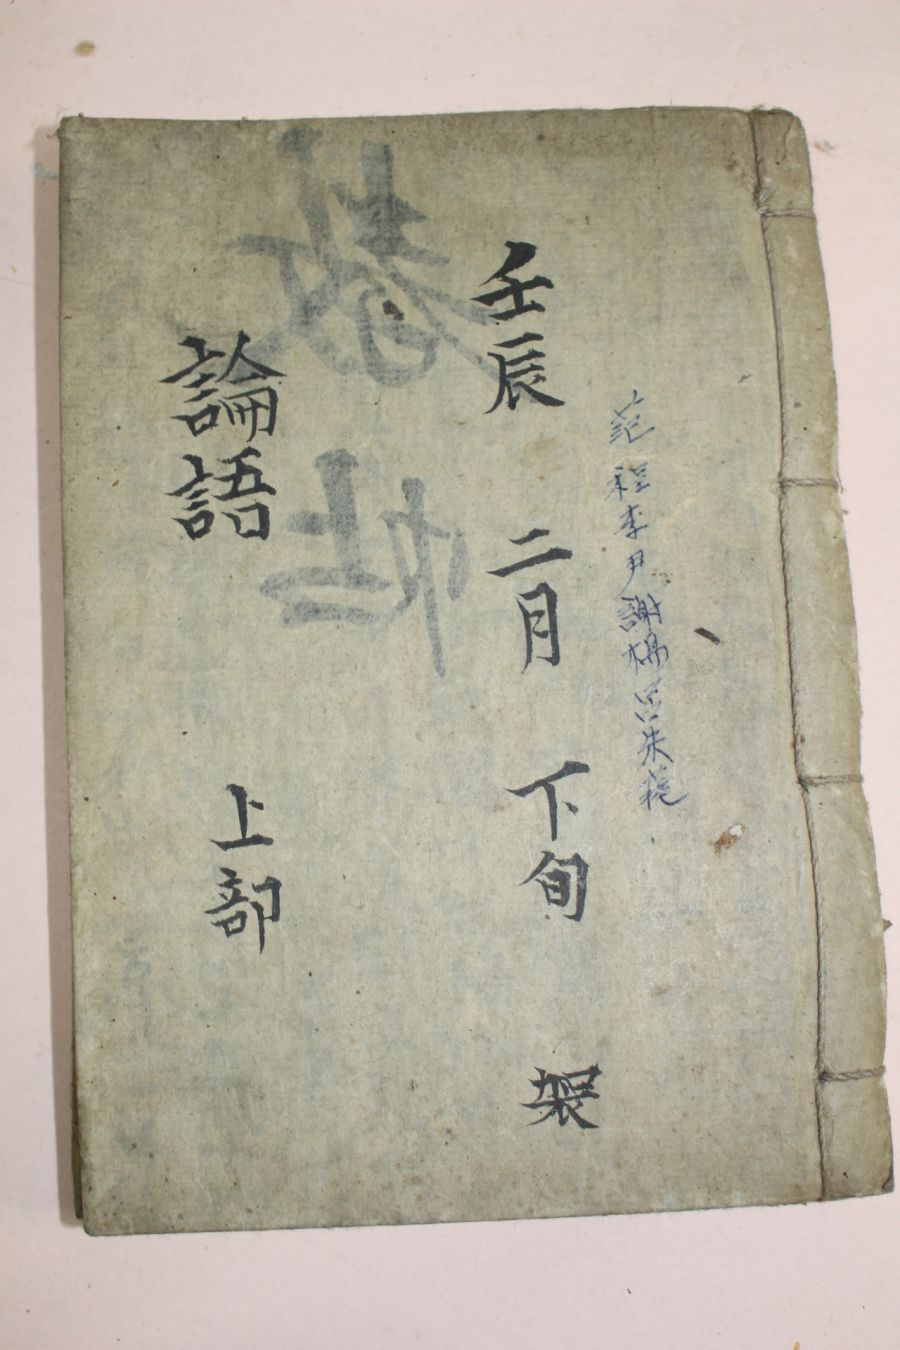 范程李尹謝楊呂朱
壬辰 二月 下旬
論語 上部